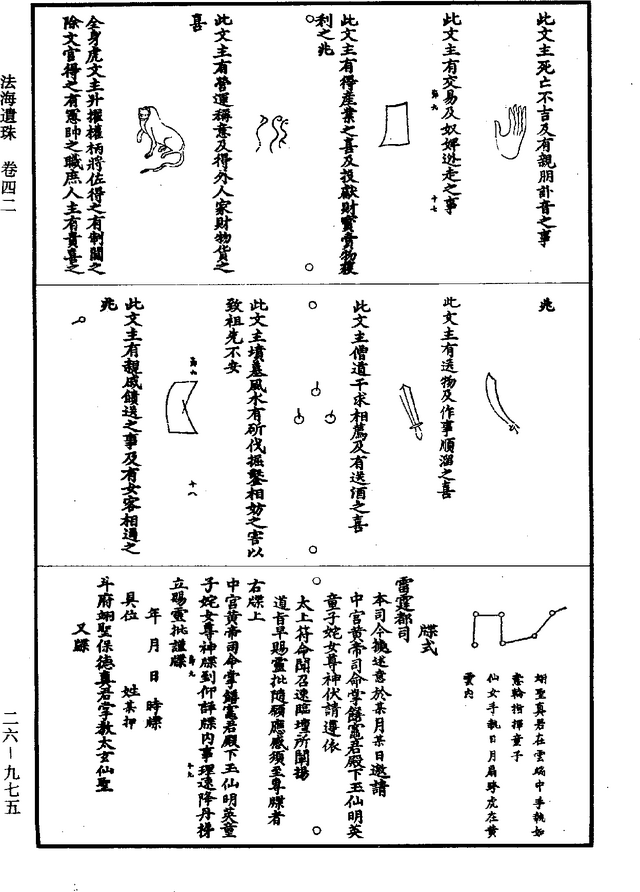 此文主死亡不吉及有親朋訃音之事
此文主有交易及奴婢逃走之事
此文主有得產業之喜及投獻財寶膏物獲
利之兆
此文主有營運稱意及得外人家財物貨之
喜
全身虎文主升擢權柄將佐得之有制閫之
除文官得之有憲帥之職庶人主有貴喜之
兆
此文主有送物及作事順溜之喜
此文主僧道干求相薦及有送酒之喜
此文主墳墓風水有斫伐掘鑿相妨之害以
致祖先不安
此文主有親戚饋送之事及有女客相過之
兆
翊聖真君在雲端中手執如
意輪指揮童子
仙女手執日月扇跨虎在黃
雲內
牒式
雷霆都司
本司今據述意於某月某日邀請
中宮黃帝司命掌饍竈君殿下玉仙明英
童子姹女尊神伏請遵依
太上符命聞召速臨壇所闡揚
道旨早賜靈批隨願應感須至專牒者
右牒上
中宮黃帝司命掌饍竈君殿下玉仙明英童
子姹女尊神牒到仰詳牒內事理速降丹扆
立賜靈批謹牒
年 月 日 時牒
具位 姓某押
斗府翊聖保德真君掌教太玄仙聖
又牒
法海遺珠 卷四二
二六–九七五